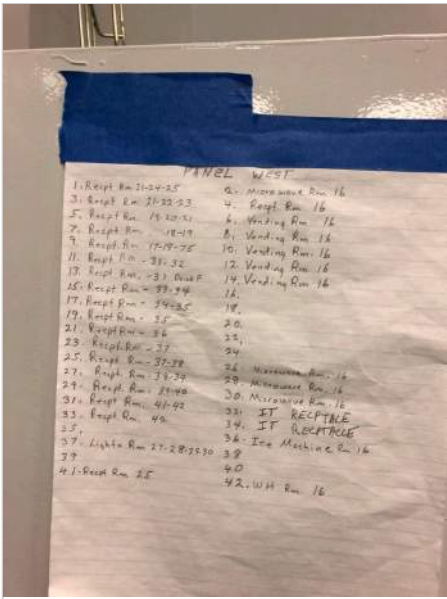 PANEL WEST
1. Recpt Rm 21-24-25
3. Recpt Rm 21-22-23
5. Recpt Rm. 19-20-21
7. Recpt Rm. 18-19
9. Recpt. Rm. 17-18-75
11. Recpt Rm - 31-32
13. Recpt Rm. -31
15. Recpt Rm - 33-34
17. Recpt Rm - 34-35
19. Recpt Rm - 35
21. Recpt Rm - 36
23. Recpt. Rm - 37
25. Recpt. Rm - 37-38
27. Recpt. Rm - 38-39
29. Recpt. Rm - 39-40
31. Recpt Rm. 41-42
33. Recpt Rm. 42
35.
37. Lights Rm 27-28-29-30
39
41-Recpt Rm 25
2. Microwave Rm. 16
4. Recpt. Rm 16
6. Vending Rm 16
8. Vending Rm. 16
10. Vending Rm. 16
12. Vending Rm 16
14. Vending Rm 16
16.
18.
20.
22.
24
26. Microwave Rm. 16
28. Microwave Rm. 16
30. Microwave Rm. 16
32. IT RECPTABLE
34. IT RECPTACLE
36. Ice Machine Rm 16
38
40
42. WH Rm. 16